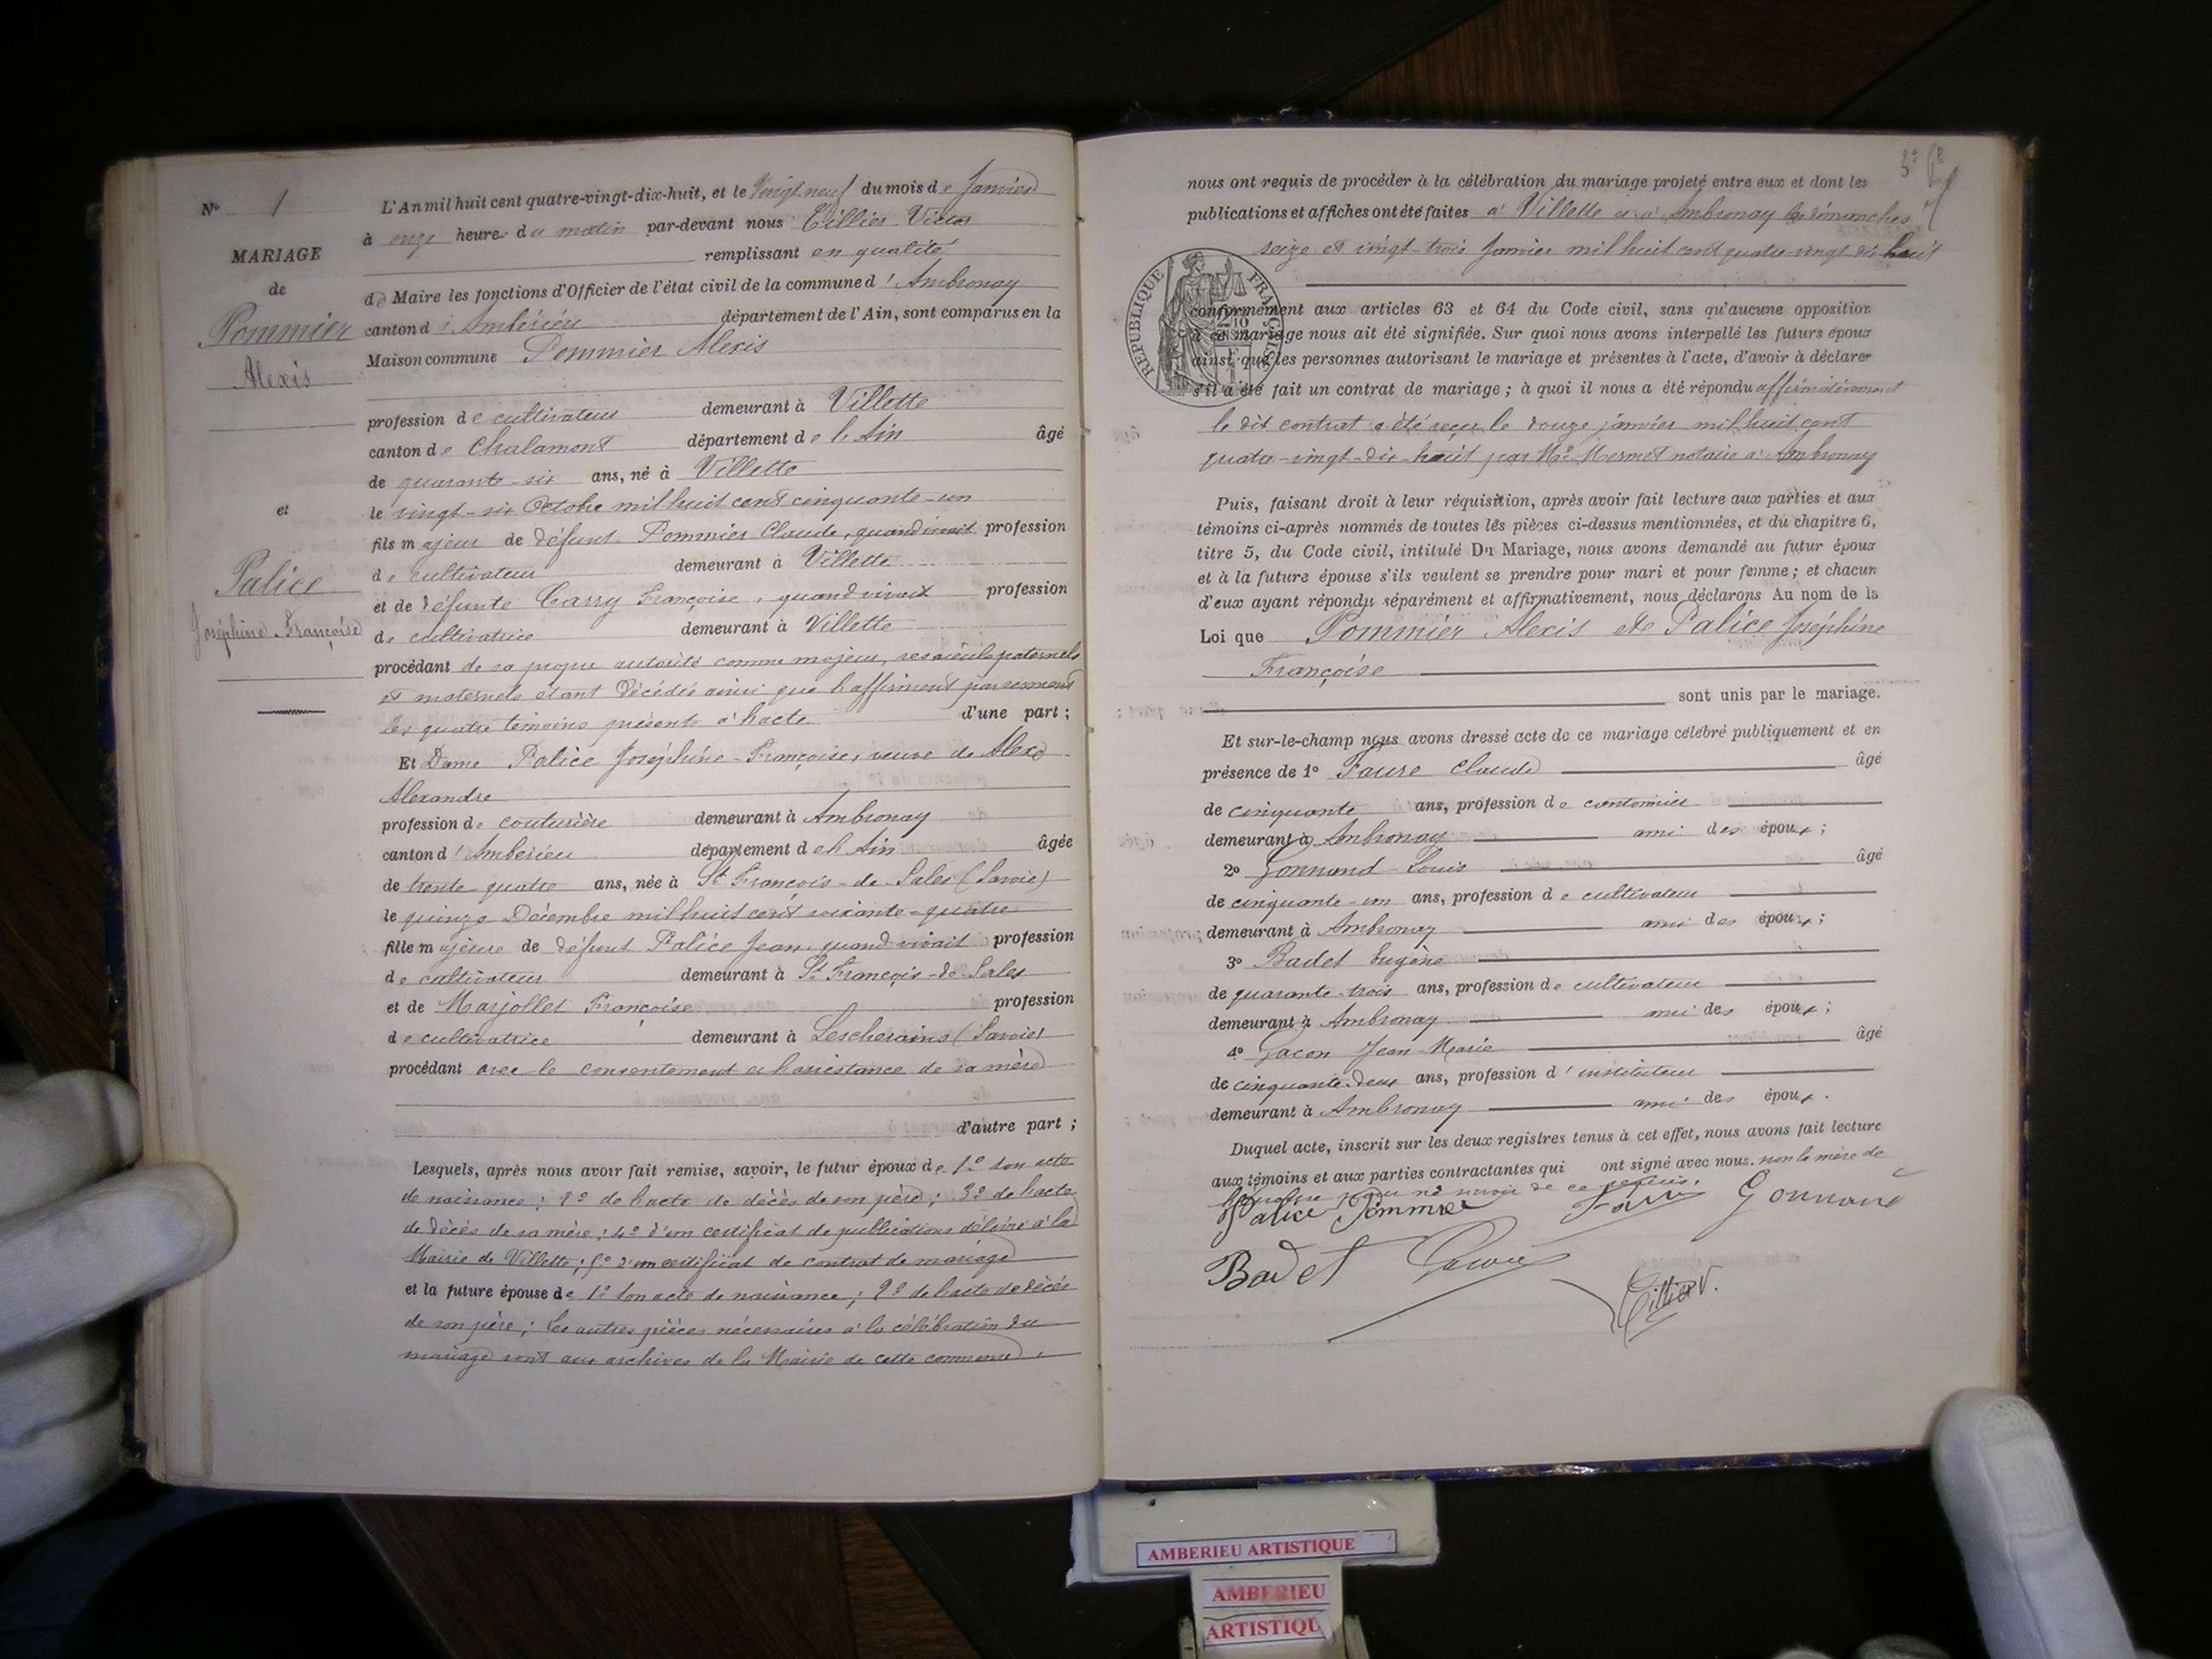 N° 1
MARIAGE
de
Pommier
Alexis
et
Palice
Joséphine Françoise
L'An mil huit cent quatre-vingt-dix-huit, et le Vingt neuf du mois de Janvier
à onze heures du matin par-devant nous Tillier Victor
remplissant en qualité
de Maire les fonctions d'Officier de l'état civil de la commune d'Ambronay
canton d'Ambérieu département de l'Ain, sont comparus en la
Maison commune Pommier Alexis
profession de cultivateur demeurant à Villette
canton de Chalamont département de l'Ain âgé
de quarante-six ans, né à Villette
le vingt-six Octobre mil huit cent cinquante-un
fils majeur de défunt Pommier Claude, quand vivait profession
de cultivateur demeurant à Villette
et de défunte Carry Françoise, quand vivait profession
de cultivatrice demeurant à Villette
procédant de sa propre autorité comme majeur, ses aïeuls paternels
et maternels étant décédés ainsi que l'affirment par serment
les quatre témoins présents à l'acte d'une part ;
Et Dame Palice Joséphine-Françoise, veuve de
Alexandre
profession de couturière demeurant à Ambronay
canton d'Ambérieu département de l'Ain âgée
de trente-quatre ans, née à St François-de-Sales (Savoie)
le quinze Décembre mil huit cent soixante-quatre
fille majeure de défunt Palice Jean, quand vivait profession
de cultivateur demeurant à St François-de-Sales
et de Marjollet Françoise profession
de cultivatrice demeurant à Lescheraines (Savoie)
procédant avec le consentement et l'assistance de sa mère
d'autre part ;
Lesquels, après nous avoir fait remise, savoir, le futur époux de 1° son acte
de naissance ; 2° de l'acte de décès de son père ; 3° de l'acte
de décès de sa mère ; 4° d'un certificat de publications délivré à la
Mairie de Villette ; 5° d'un certificat de contrat de mariage
et la future épouse de 1° son acte de naissance ; 2° de l'acte de décès
de son père ; Les autres pièces nécessaires à la célébration du
mariage sont aux archives de la Mairie de cette commune.
nous ont requis de procéder à la célébration du mariage projeté entre eux et dont les
publications et affiches ont été faites à Villette et à Ambronay les dimanches
seize et vingt-trois Janvier mil huit cent quatre-vingt-dix-huit
REPUBLIQUE FRANÇAISE
conformément aux articles 63 et 64 du Code civil, sans qu'aucune opposition
à ce mariage nous ait été signifiée. Sur quoi nous avons interpellé les futurs époux
ainsi que les personnes autorisant le mariage et présentes à l'acte, d'avoir à déclarer
s'il a été fait un contrat de mariage ; à quoi il nous a été répondu affirmativement
le dit contrat a été reçu le douze janvier mil huit cent
quatre-vingt-dix-huit par Me Mermet notaire à Ambronay
Puis, faisant droit à leur réquisition, après avoir fait lecture aux parties et aux
témoins ci-après nommés de toutes les pièces ci-dessus mentionnées, et du chapitre 6,
titre 5, du Code civil, intitulé Du Mariage, nous avons demandé au futur époux
et à la future épouse s'ils veulent se prendre pour mari et pour femme ; et chacun
d'eux ayant répondu séparément et affirmativement, nous déclarons Au nom de la
Loi que Pommier Alexis et Palice Joséphine
Françoise
sont unis par le mariage.
Et sur-le-champ nous avons dressé acte de ce mariage célébré publiquement et en
présence de 1° Faure Claude âgé
de cinquante ans, profession de cantonnier
demeurant à Ambronay ami des époux ;
2° Gonnand Louis âgé
de cinquante-un ans, profession de cultivateur
demeurant à Ambronay ami des époux ;
3° Badet Eugène
de quarante-trois ans, profession de cultivateur
demeurant à Ambronay ami des époux ;
4° Gacon Jean Marie âgé
de cinquante-deux ans, profession d'instituteur
demeurant à Ambronay ami des époux.
Duquel acte, inscrit sur les deux registres tenus à cet effet, nous avons fait lecture
aux témoins et aux parties contractantes qui ont signé avec nous. non la mère de
l'épouse pour ne savoir de ce requise.
Palice Pommier Faure Gonnand
Badet Gacon
Tillier V.
AMBERIEU ARTISTIQUE
AMBERIEU
ARTISTIQU